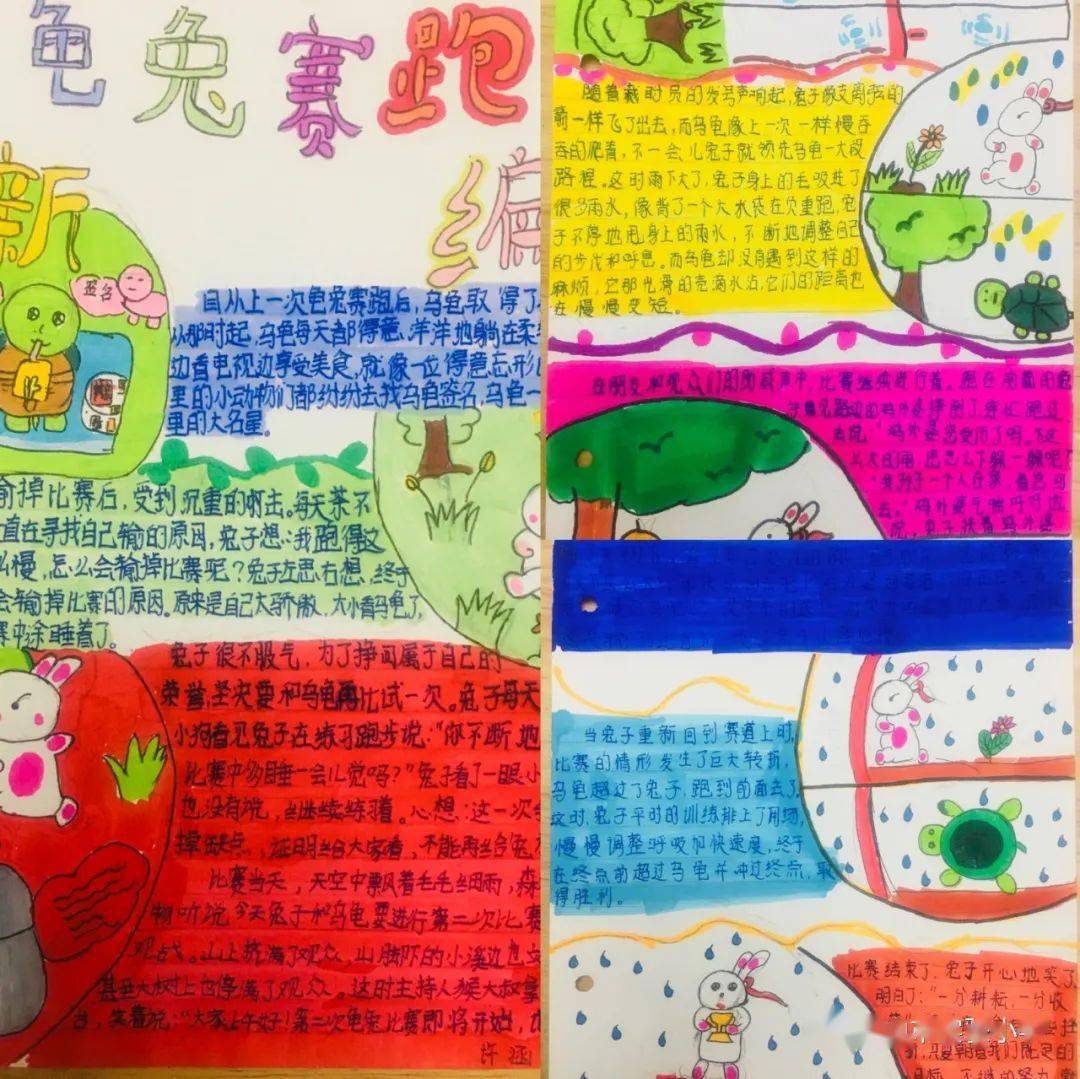 龟兔赛跑
新编
签名
自从上一次龟兔赛跑后,乌龟取得了
从那时起,乌龟每天都得意洋洋地躺在柔
边看电视边享受美食,就像一位得意忘形
里的小动物们都纷纷去找乌龟签名,乌龟一
里的大名星。
输掉比赛后,受到沉重的打击。每天茶不
直在寻找自己输的原因,兔子想:我跑得这
么慢,怎么会输掉比赛呢?兔子左思右想,终于
会输掉比赛的原因。原来是自己太骄傲,太小看乌龟了,
赛中途睡着了。
兔子很不服气,为了挣回属于自己的
荣誉,坚决要和乌龟再比试一次。兔子每天
小狗看见兔子在练习跑步说:“你不断地
比赛中多睡一会儿觉吗?”兔子看了一眼小
也没有说,继续练习着。心想:这一次
掉缺点,证明给大家看,不能再给兔
比赛当天,天空中飘着毛毛细雨,森
物听说今天兔子和乌龟要进行第二次比赛
观战。山上挤满了观众,山脚下的小溪边也
甚至大树上也停满了观众。这时主持人猴大叔拿
台,笑着说:“大家上午好!第二次龟兔比赛即将开始,
许涵
随着裁时员的发号声响起,兔子像支离弦的
箭一样飞了出去,而乌龟像上一次一样慢吞
吞的爬着,不一会儿兔子就领先乌龟一大段
路程。这时雨下大了,兔子身上的毛吸进了
很多雨水,像背了一个大水袋在负重跑,兔
子不停地甩身上的雨水,不断地调整自己
的步伐和呼息。而乌龟却没有遇到这样的
麻烦,它那光滑的壳滴水沾,它们的距离也
在慢慢变短。
在朋友和观众们的助威声中,比赛继续进行着。跑在前面的兔
子看见路边的鸡外婆摔倒了连忙跑过
去说:“鸡外婆您受伤了吗。下这
上大的雨,您怎么不躲一躲呢?
当兔子重新回到赛道上时,
比赛的情形发生了巨大转折,
乌龟超过了兔子,跑到前面去了,
这时,兔子平时的训练排上了用场,
慢慢调整呼吸加快速度,终于
在终点前超过乌龟并冲过终点,取
得胜利。
比赛结束了,兔子开心地笑了
明白了:“一分耕耘,一分收
折,只要朝着我们既定的
目标,不继的努力,